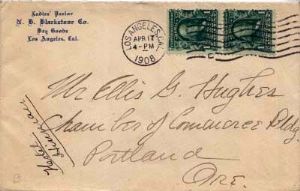 Ladies' Parlor
N. B. Blackstone Co.
Dry Goods
Los Angeles, Cal.
LOS ANGELES, CAL.
APR 17
4-PM
1908
Mr Ellis G. Hughes
Chamber of Commerce Bldg
Portland
Ore.